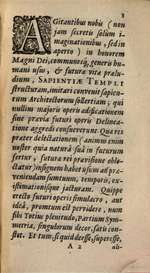 3
AGitantibus nobis (non
jam secretis solùm i-
maginationibus, sed in
aperto) in honorem
Magni Dei, communisq, generis hu-
mani usus, & futuræ vitæ prælu-
dium, SAPIENTIÆ TEMPLI
structuram, imitari convenit sapien-
rum Architectorum sollertiam; qui
nullum majoris operis ædificationem
sine prævia futuri operis Delinea-
tione aggredi consueverunt. Quæ res
præter delectationem (animis enim
noster quia naturâ suâ in futurum
fertur, futura rei præfentire oble-
ctatur) insignem habet usum ad præ-
videndum sumtuum, temporis, ex-
istimationisque jacturam. Quippe
erecto futuri operis simulacro, aut
ideâ, promtum est pervidere, num
sibi Totius plenitudo, Partium Sym-
metria, singulorum decor, satis con-
stet. Et tum, si quid deesse, superesse,
A 2